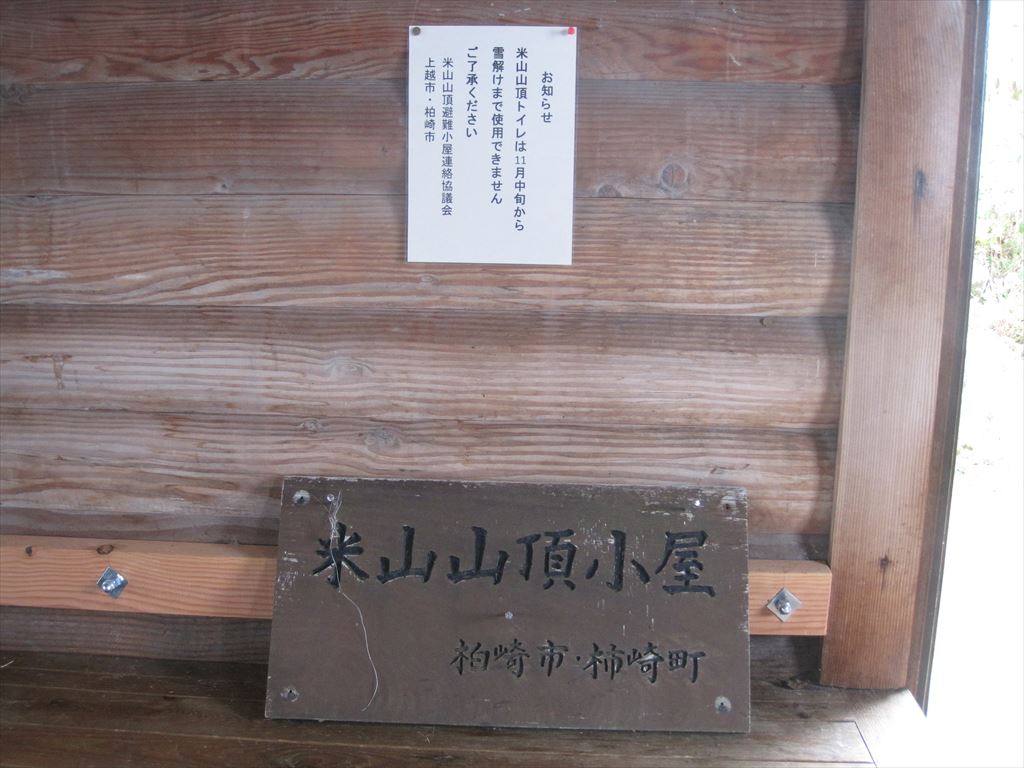 お知らせ
米山山頂トイレは11月中旬から
雪解けまで使用できません
ご了承ください
米山山頂避難小屋連絡協議会
上越市・柏崎市
米山山頂小屋
柏崎市・柿崎町